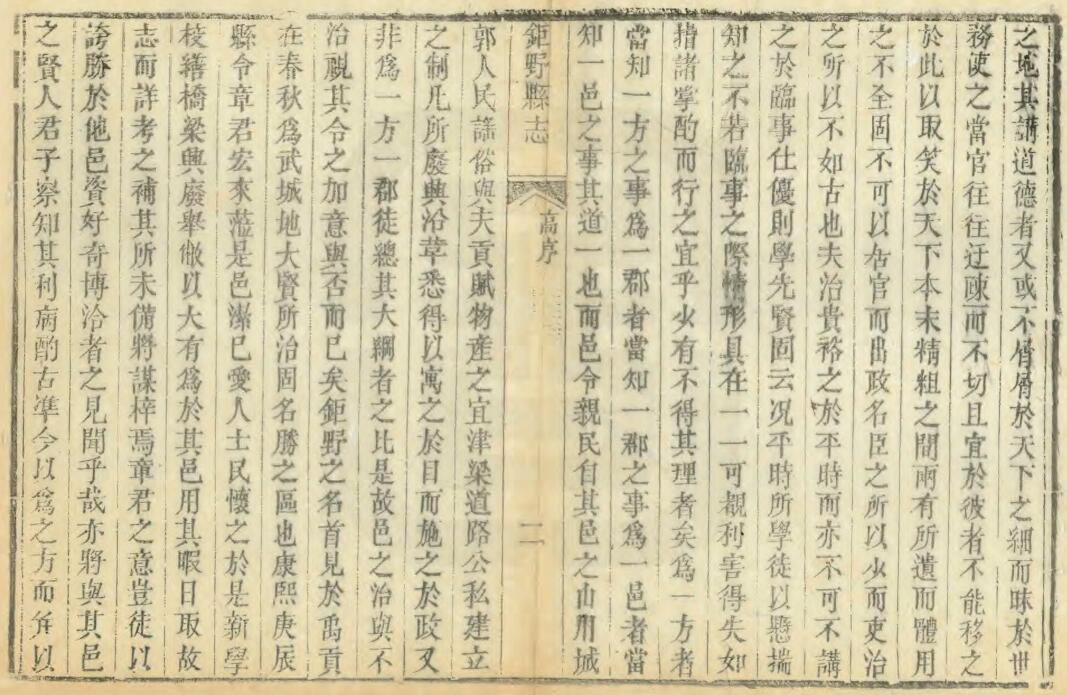 之地其講道德者又或不屑屑於天下之細而昧於世
務使之當官往往迂疎而不切且宜於彼者不能移之
於此以取笑於天下本末精粗之間兩有所遺而體用
之不全固不可以居官而出政名臣之所以少而吏治
之所以不如古也夫治貴裕之於平時而亦不可不講
之於臨事仕優則學先賢固云况平時所學徒以懸揣
知之不若臨事之際情形具在一一可觀利害得失如
指諸掌酌而行之宜乎少有不得其理者矣為一方者
當知一方之事為一郡者當知一郡之事為一邑者當
知一邑之事其道一也而邑令親民自其邑之山川城
鉅野縣志
高序
二
郭人民謠俗與夫貢賦物産之宜津梁道路公私建立
之制凡所廢興沿革悉得以寓之於目而施之於政又
非為一方一郡徒總其大綱者之比是故邑之治與不
治視其令之加意與否而已矣鉅野之名首見於禹貢
在春秋為武城地大賢所治固名勝之區也康熙庚辰
縣令章君宏來蒞是邑潔已愛人士民懷之於是新學
校繕橋梁興廢舉敝以大有為於其邑用其暇日取故
志而詳考之補其所未備將謀梓焉章君之意豈徒以
誇勝於他邑資好奇博洽者之見聞乎哉亦將與其邑
之賢人君子察知其利病酌古準今以為之方而所以